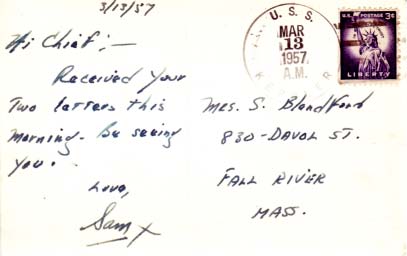 3/13/57
Hi Chief;-
Received Your
Two letters this
morning. Be seeing
you.
Love,
Sam x
U. S. S.
MAR
13
1957
A.M.
U.S. POSTAGE 3¢
LIBERTY
Mrs. S. Blandford
830-DAVOL ST.
FALL RIVER
MASS.